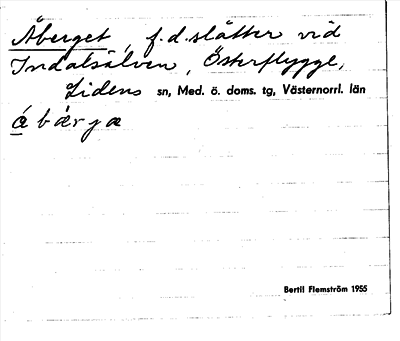 Åberget, f.d. slåtter vid
Indalsälven, Österflygge,
Lidens sn, Med. ö. doms. tg, Västernorrl. län
å bärja
Bertil Flemström 1955